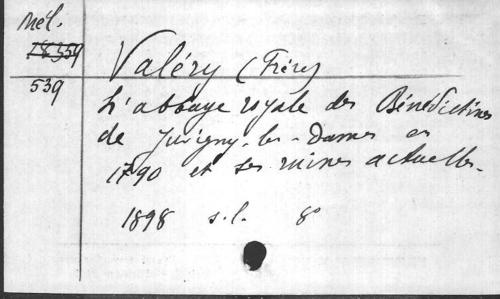 Mél.
18359
539
Valéry (Frère)
L'abbaye royale des Bénédictines
de Juvigny-les-Dames en
1790 et ses ruines actuelles.
1898 s.l. 8°